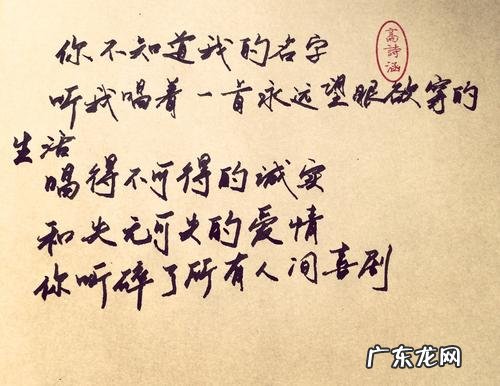 你不知道我的名字
高詩涵
听我唱着一首永远望眼欲穿的
生活
唱得不可得的诚实
和失无可失的爱情
你听碎了所有人间喜剧
广东龙网